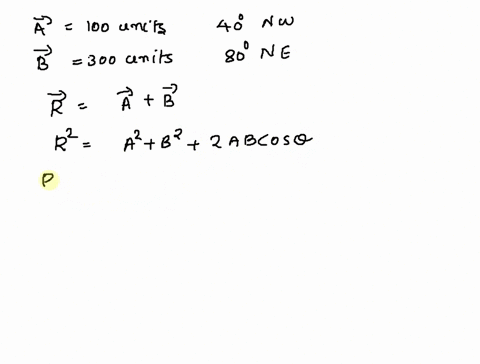 A⃗ = 100 units 40° NW
B⃗ = 300 units 80° NE
R⃗ = A⃗ + B⃗
R² = A² + B² + 2ABCosθ
R